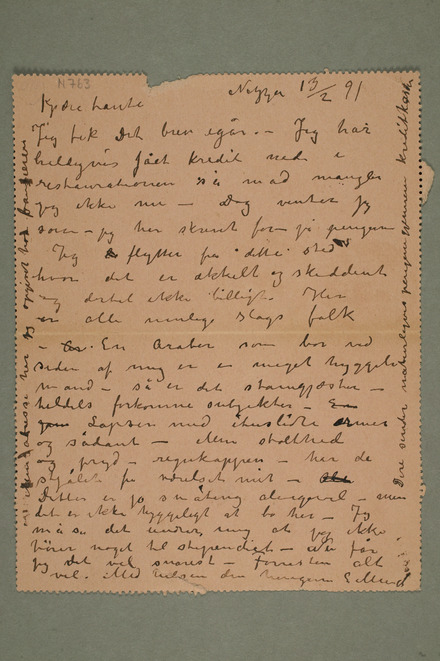 N 763
Nizza 13/2 91
Kjære tante
Jeg fik dit brev igår. – Jeg har
heldigvis fået kredit nede i
restaurationen så mad mangler
jeg ikke nu – Dog venter jeg
svar – jeg har skrevet for få pengene
Jeg flytter fra dette sted
hvor det er ækkelt og skiddent
og dertil ikke billigt. Her
er alle mulige slags folk
– En Araber som bor ved
siden af mig er en meget hyggelig
mand – så er det stamgjæster –
heldels forkomne subjekter –
Lapsen med ituslidte ærmer
og sådant – Men stolthed
og pryd – regnkappen – har de
stjålet fra værelset mit –
Dette er jo småting alergavel – men
det er ikke hyggeligt at bo her – Jeg
må sige det undrer mig at jeg ikke
hører noget til stipendiet – får
jeg det vel snarest – Forresten alt
vel. Med hilsen din hengivne E Munch
min adresse har jeg opgivet hos bankieren
Dere sender naturligvis pengene gjennem Kreditkassen